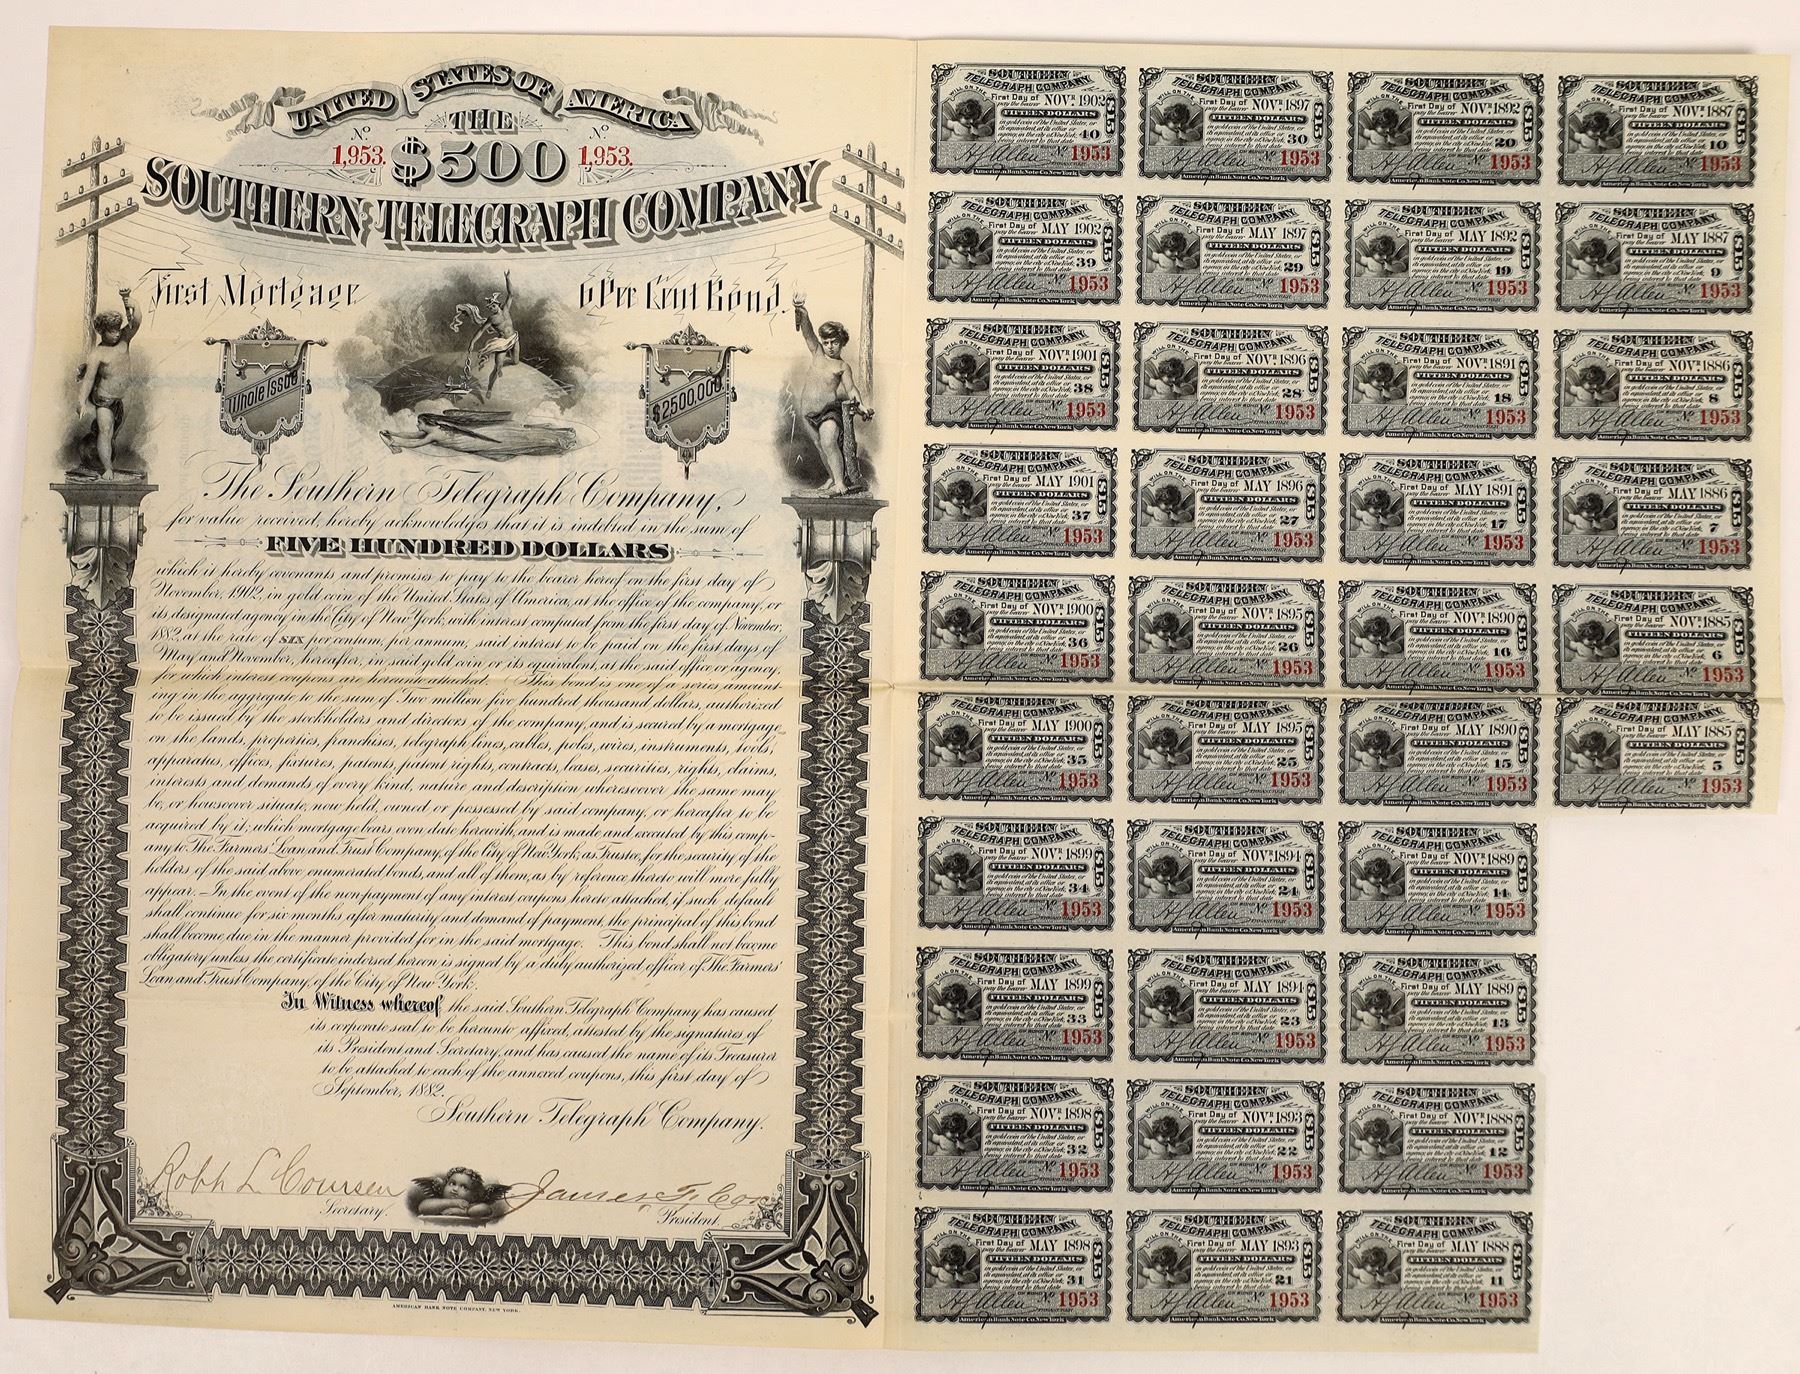 UNITED STATES OF AMERICA
THE
No 1,953. $500 No 1,953.
SOUTHERN TELEGRAPH COMPANY
First Mortgage 6 Per Cent Bond.
Whole Issue $2500,000
The Southern Telegraph Company,
for value received, hereby acknowledges that it is indebted in the sum of
FIVE HUNDRED DOLLARS
which it hereby covenants and promises to pay to the bearer hereof on the first day of
November, 1902, in gold coin of the United States of America, at the office of the company, or
its designated agency in the City of New York, with interest computed from the first day of November,
1882, at the rate of SIX per centum, per annum, said interest to be paid on the first days of
May and November, hereafter, in said gold coin or its equivalent, at the said office or agency,
for which interest coupons are hereunto attached. This bond is one of a series amount-
ing in the aggregate to the sum of Two million five hundred thousand dollars, authorized
to be issued by the stockholders and directors of the company, and is secured by a mortgage
on the lands, properties, franchises, telegraph lines, cables, poles, wires, instruments, tools,
apparatus, offices, fixtures, patents, patent rights, contracts, leases, securities, rights, claims,
interests and demands of every kind, nature and description wheresoever the same may
be, or howsoever situate, now held, owned or possessed by said company, or hereafter to be
acquired by it; which mortgage bears even date herewith, and is made and executed by this comp-
any to The Farmers' Loan and Trust Company, of the City of New York, as Trustee, for the security of the
holders of the said above enumerated bonds, and all of them, as by reference thereto will more fully
appear. In the event of the nonpayment of any interest coupons hereto attached, if such default
shall continue for six months after maturity and demand of payment, the principal of this bond
shall become due in the manner provided for in the said mortgage. This bond shall not become
obligatory unless the certificate indorsed hereon is signed by a duly authorized officer of The Farmers'
Loan and Trust Company, of the City of New York.
In Witness whereof, the said Southern Telegraph Company has caused
its corporate seal to be hereunto affixed, attested by the signatures of
its President and Secretary, and has caused the name of its Treasurer
to be attached to each of the annexed coupons, this first day of
September, 1882.
Southern Telegraph Company.
Robt L Coursen James F. Cox
Secretary. President.
AMERICAN BANK NOTE COMPANY, NEW YORK.
SOUTHERN
TELEGRAPH COMPANY
WILL ON THE First Day of NOVR 1902
pay the bearer
FIFTEEN DOLLARS $15
in gold coin of the United States, or
its equivalent, at its office or
agency, in the city of New York, 40
being interest to that date
HJ Allen No 1953
American Bank Note Co. New York
NOVR 1897 $15 30 HJ Allen No 1953
NOVR 1892 $15 20 HJ Allen No 1953
NOVR 1887 $15 10 HJ Allen No 1953
MAY 1902 $15 39 HJ Allen No 1953
MAY 1897 $15 29 HJ Allen No 1953
MAY 1892 $15 19 HJ Allen No 1953
MAY 1887 $15 9 HJ Allen No 1953
NOVR 1901 $15 38 HJ Allen No 1953
NOVR 1896 $15 28 HJ Allen No 1953
NOVR 1891 $15 18 HJ Allen No 1953
NOVR 1886 $15 8 HJ Allen No 1953
MAY 1901 $15 37 HJ Allen No 1953
MAY 1896 $15 27 HJ Allen No 1953
MAY 1891 $15 17 HJ Allen No 1953
MAY 1886 $15 7 HJ Allen No 1953
NOVR 1900 $15 36 HJ Allen No 1953
NOVR 1895 $15 26 HJ Allen No 1953
NOVR 1890 $15 16 HJ Allen No 1953
NOVR 1885 $15 6 HJ Allen No 1953
MAY 1900 $15 35 HJ Allen No 1953
MAY 1895 $15 25 HJ Allen No 1953
MAY 1890 $15 15 HJ Allen No 1953
MAY 1885 $15 5 HJ Allen No 1953
NOVR 1899 $15 34 HJ Allen No 1953
NOVR 1894 $15 24 HJ Allen No 1953
NOVR 1889 $15 14 HJ Allen No 1953
MAY 1899 $15 33 HJ Allen No 1953
MAY 1894 $15 23 HJ Allen No 1953
MAY 1889 $15 13 HJ Allen No 1953
NOVR 1898 $15 32 HJ Allen No 1953
NOVR 1893 $15 22 HJ Allen No 1953
NOVR 1888 $15 12 HJ Allen No 1953
MAY 1898 $15 31 HJ Allen No 1953
MAY 1893 $15 21 HJ Allen No 1953
MAY 1888 $15 11 HJ Allen No 1953